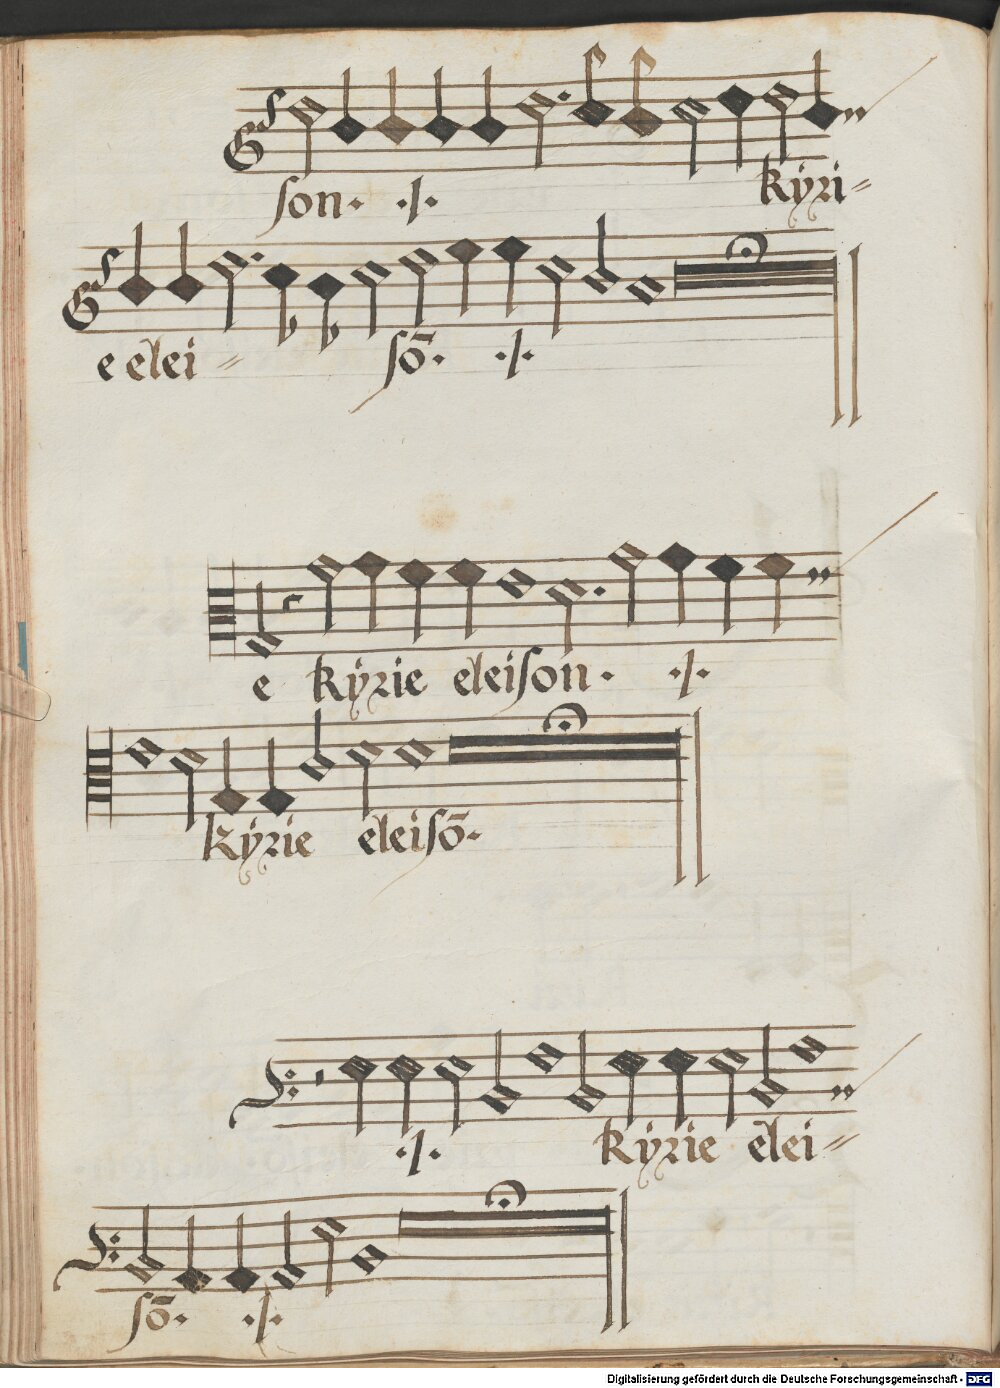 son· ·/· kyri=
e elei= sō· ·/·
e kyrie eleison· ·/·
kyrie eleisō·
·/· kyrie elei=
sō· ·/·
Digitalisierung gefördert durch die Deutsche Forschungsgemeinschaft - DFG